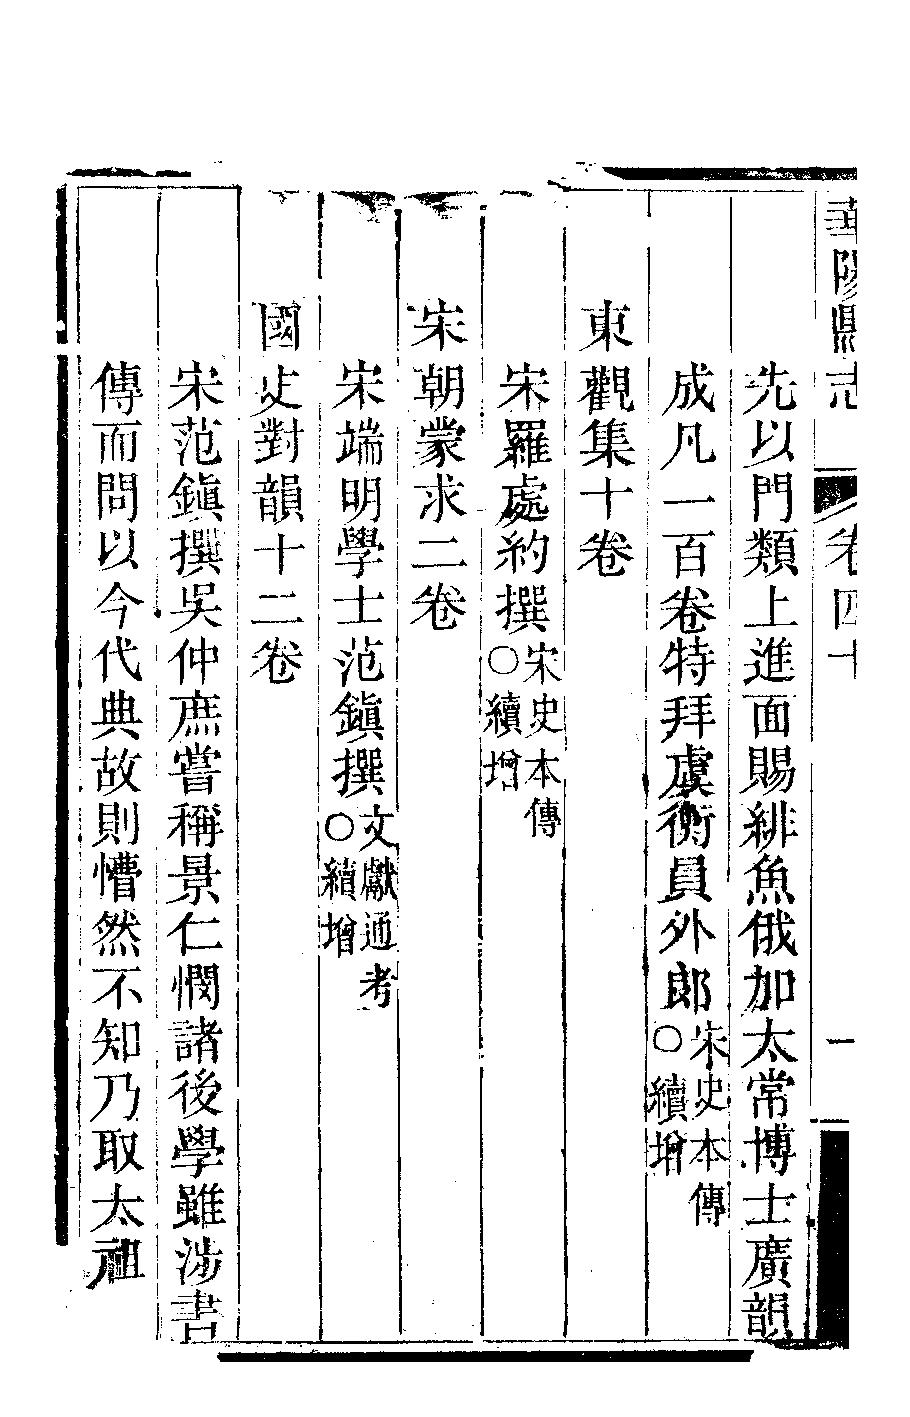 華陽縣志 卷四十 一
先以門類上進面賜緋魚俄加太常博士廣韻
成凡一百卷特拜虞衡員外郎宋史本傳○續增
東觀集十卷
宋羅處約撰宋史本傳○續增
宋朝蒙求二卷
宋端明學士范鎭撰文獻通考○續增
國史對韻十二卷
宋范鎭撰吳仲庶嘗稱景仁憫諸後學雖涉書
傳而問以今代典故則懵然不知乃取太祖